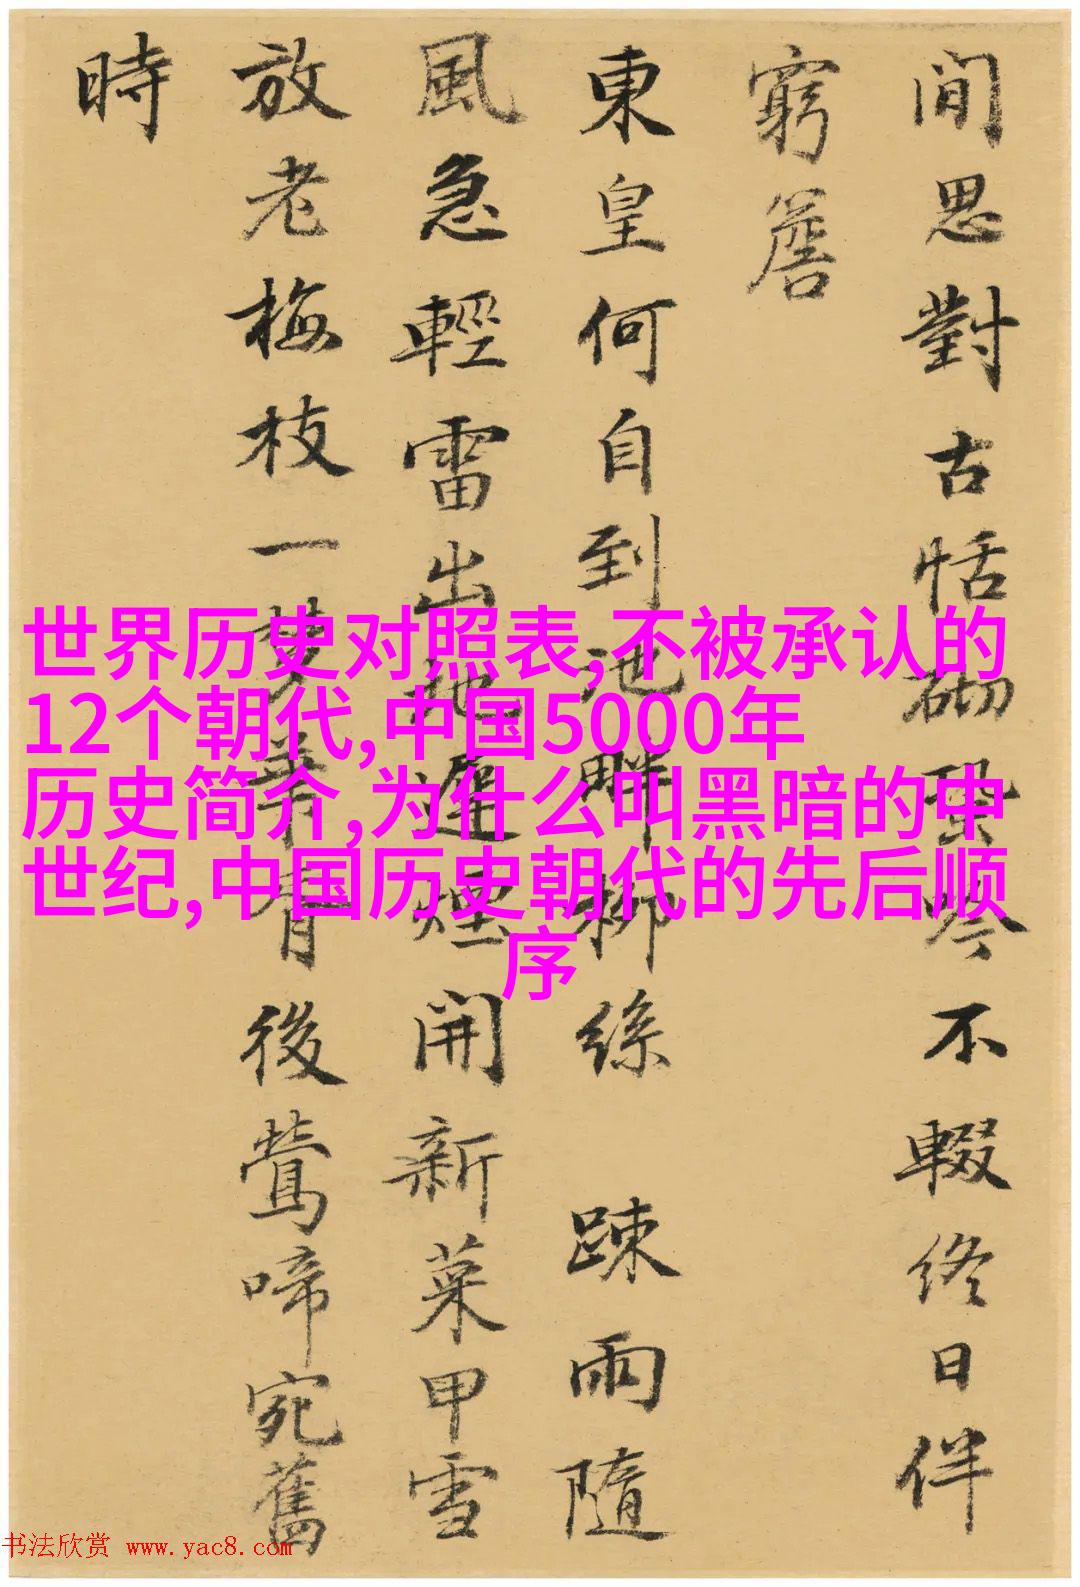 閒思對古恬砌蛩吟不輟終日伴
窮簷
東皇何自到池畔柳絲 踈雨隨
風急輕雷出地遲煙開新菜甲雪
放老梅枝一夢華胥後鶯啼宛舊
時
世界历史对照表,不被承认的
12个朝代,中国5000年
历史简介,为什么叫黑暗的中
世纪,中国历史朝代的先后顺
序
书法欣赏 www.yac8.com